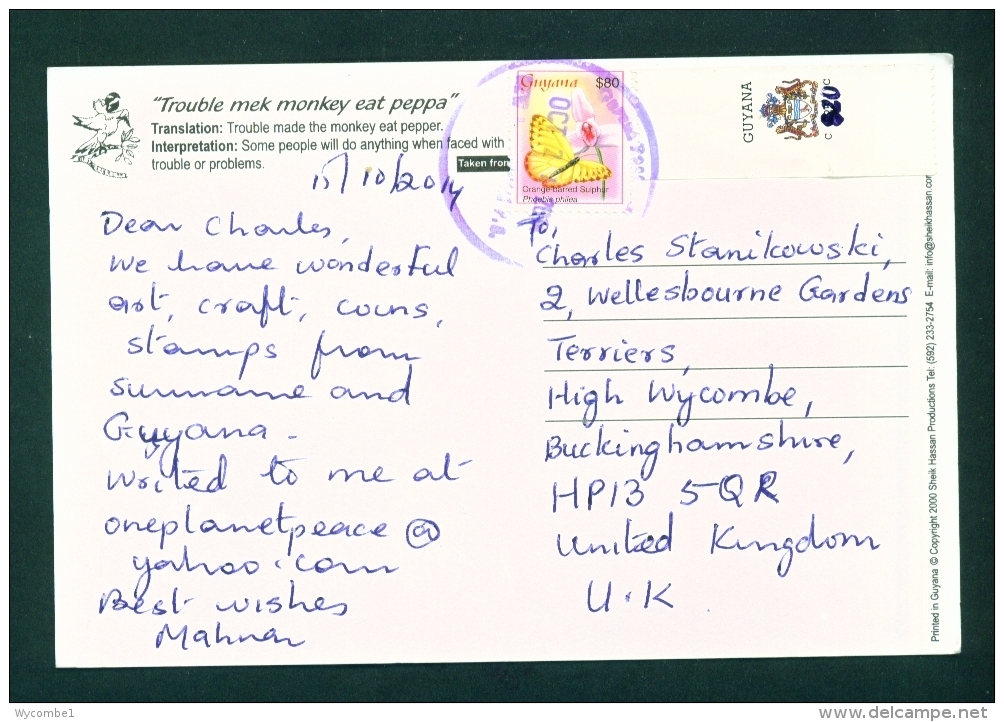 "Trouble mek monkey eat peppa"
Translation: Trouble made the monkey eat pepper.
Interpretation: Some people will do anything when faced with
trouble or problems.
Taken from
15/10/2014
Dear Charles,
We have wonderful
art, craft, coins,
stamps from
suriname and
Guyana -
writed to me at
oneplanetpeace@
yahoo.com
Best wishes
Guyana $80
OCT
Orange-barred Sulphur
Phoebis philea
GUYANA
c 20 c
To,
Charles Stanikowski,
2, Wellesbourne Gardens
Terriers,
High Wycombe,
Buckinghamshire,
HP13 5QR
United Kingdom
U.K
Printed in Guyana © Copyright 2000 Sheik Hassan Productions Tel: (592) 233-2754 E-mail: info@sheikhassan.com
Wycombe1
delcampe.net